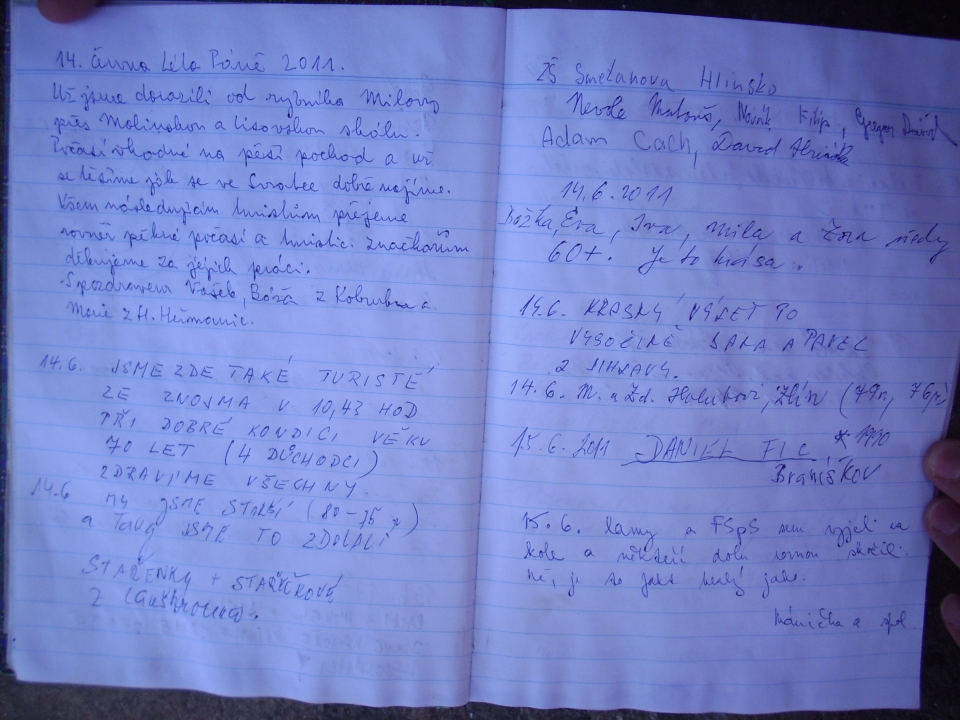 14. června Léta Páně 2011.
Už jsme dorazili od rybníka Milovy
přes Malinskou a Lisovskou skálu.
Počasí vhodné na pěší pochod a už
se těšíme jak se ve Svratce dobře najíme.
Všem následujícím turistům přejeme
rovněž pěkné počasí a turistic. značkařům
děkujeme za jejich práci.
S pozdravem Vašek, Bóža z
Marie z H. Heřmanic.
14.6. JSME ZDE TAKÉ TURISTÉ
ZE ZNOJMA V 10,43 HOD
PŘI DOBRÉ KONDICI VĚKU
70 LET (4 DŮCHODCI)
ZDRAVÍME VŠECHNY.
14.6 MY JSME STARŠÍ (80-75 r)
a Taky JSME TO ZDOLALI
STAŘENKY + STAŘÍČKOVÉ
Z
ZŠ Smetanova Hlinsko
Nevole Matouš, Novák Filip, David
Adam Cach, David
14.6.2011
Božka, Eva, Iva, Mila a Zora všechny
60+. Je to krása.
14.6. KRÁSNÝ VÝLET PO
VYSOČINĚ JANA A PAVEL
Z JIHLAVY.
14.6. M. a Zd. Holubovi, Zlín (79r, 76r)
15.6.2011 DANIEL FIC, * 1990
Braníškov
15.6. a FSpS sem vyjeli na
kole a někteří dolu rovnou skočili.
Né, je to fakt hezký jako.
Mánička a spol.